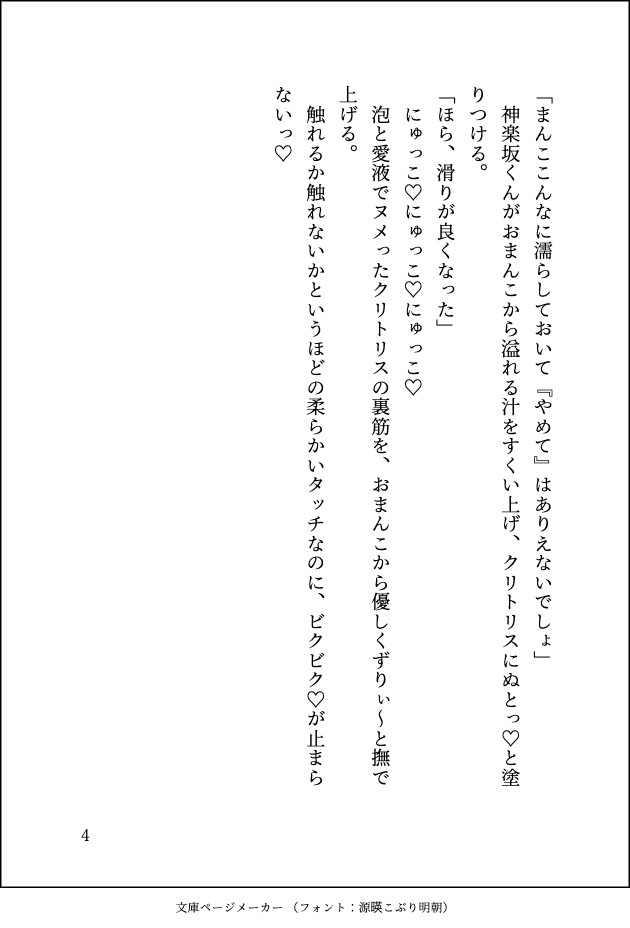 「まんここんなに濡らしておいて『やめて』はありえないでしょ」
　神楽坂くんがおまんこから溢れる汁をすくい上げ、クリトリスにぬとっ♡と塗
りつける。
「ほら、滑りが良くなった」
　にゅっこ♡にゅっこ♡にゅっこ♡
　泡と愛液でヌメったクリトリスの裏筋を、おまんこから優しくずりぃ〜と撫で
上げる。
　触れるか触れないかというほどの柔らかいタッチなのに、ビクビク♡が止まら
ないっ♡
4
文庫ページメーカー（フォント：源暎こぶり明朝）